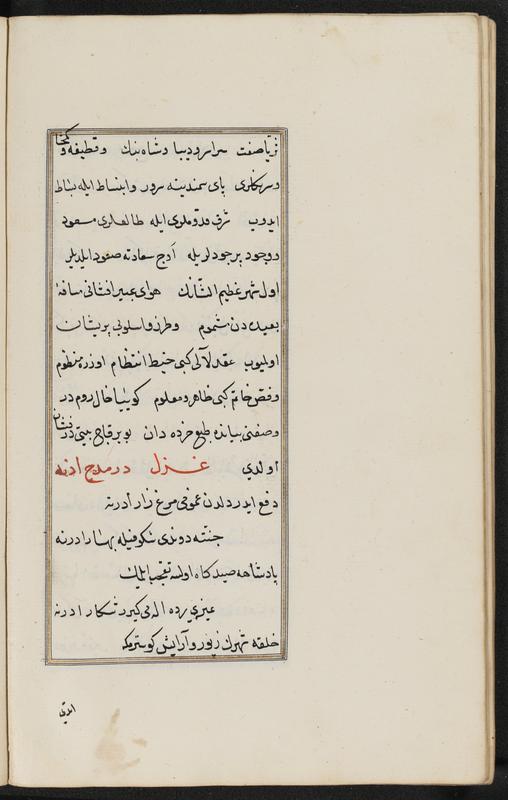 ثریا صفت سراسر و دیبا و شاه بنك و قطیفه و کمخا
و سربکلری پای سمندینه سرور و انبساط ایله بساط
ایدوب شرف قدوملری ایله طالعلری مسعود
و وجود پرجودلریله اوج سعادته صعود ایلدیلر
اول شهر عظیم الشانك هوای عبیر افشانی مسافهٔ
بعیده دن مشموم و طرز و اسلوبی پریشان
اولمیوب عقد لآلی کبی خیط انتظام اوزره منظوم
و فص خاتم کبی ظاهر و معلوم کوییا خال روم در
وصفنی بیانده طبع خرده دان بو بر قاچ بیتی در فشان
اولدی غزل در مدح ادرنه
دفع ایدر دلدن غمومی مرغزار ادرنه
جنته دوندی شکوفیله بهار ادرنه
پادشاهه صیدکاه اولسه تعجب ایلمك
شکار ادرنه
خلقه شهرك زیور و آرایش کوسترمکه